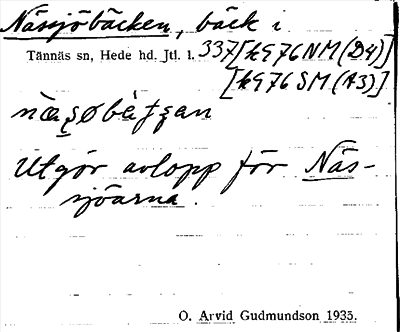 Näsjöbäcken, bäck i
Tännäs sn, Hede hd. Jtl. l. 337 [k976NM(D4)]
[k976SM(A3)]
Utgör avlopp för Näs-
sjöarna.
O. Arvid Gudmundson 1935.